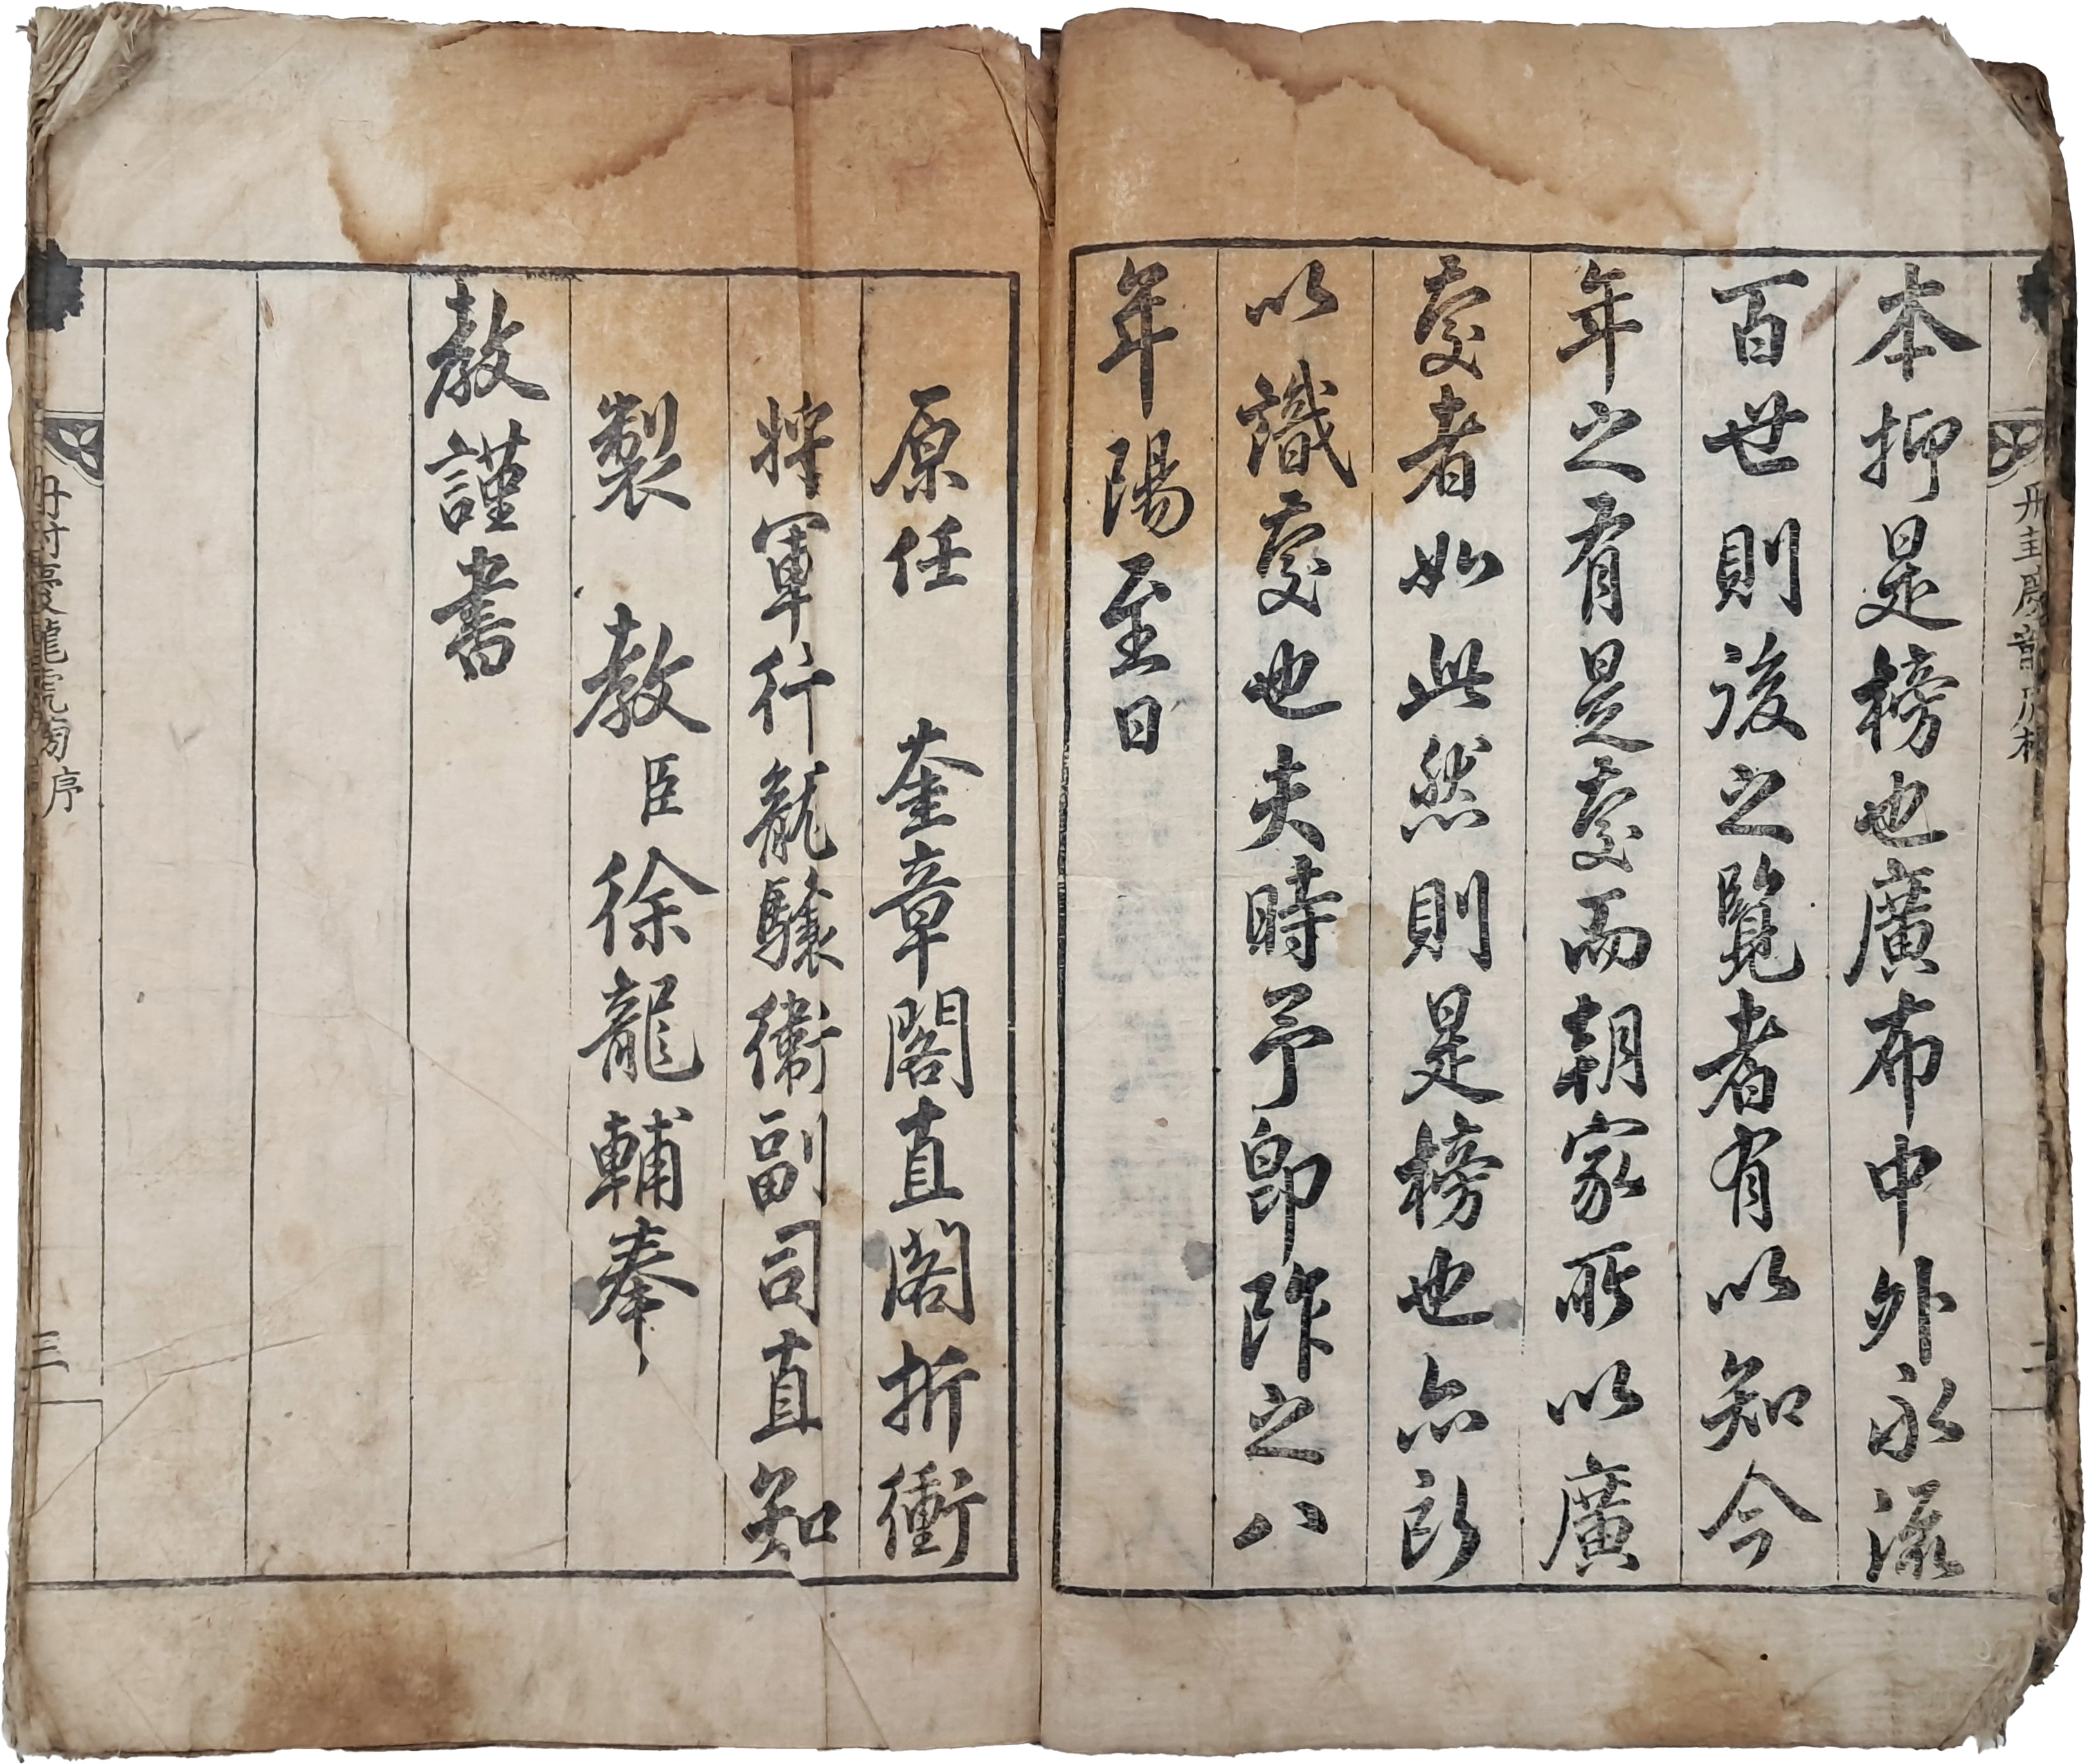 冊封慶龍虎榜
二
本抑是榜也廣布中外永流
百世則後之覽者有以知今
年之有是慶而朝家所以廣
慶者如此然則是榜也亦所
以識慶也夫時予卽阼之八
年陽至日
原任 奎章閣直閣折衝
將軍行龍驤衛副司直知
製 教臣徐龍輔奉
教謹書
冊封慶龍虎榜序
三